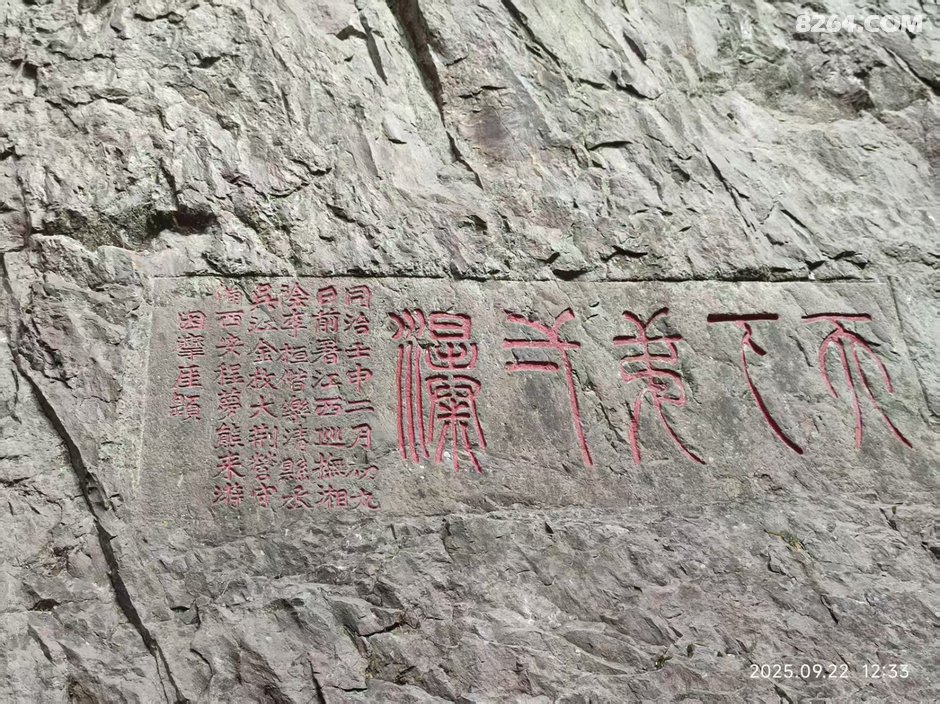 天下弟弌瀑
同治壬申二月初九
日前署江西巡撫湘
陰李桓偕樂清縣丞
吳江金枚大荊營守
備西安程夢熊來游
因擘厓題
8264.COM
2025.09.22 12:33